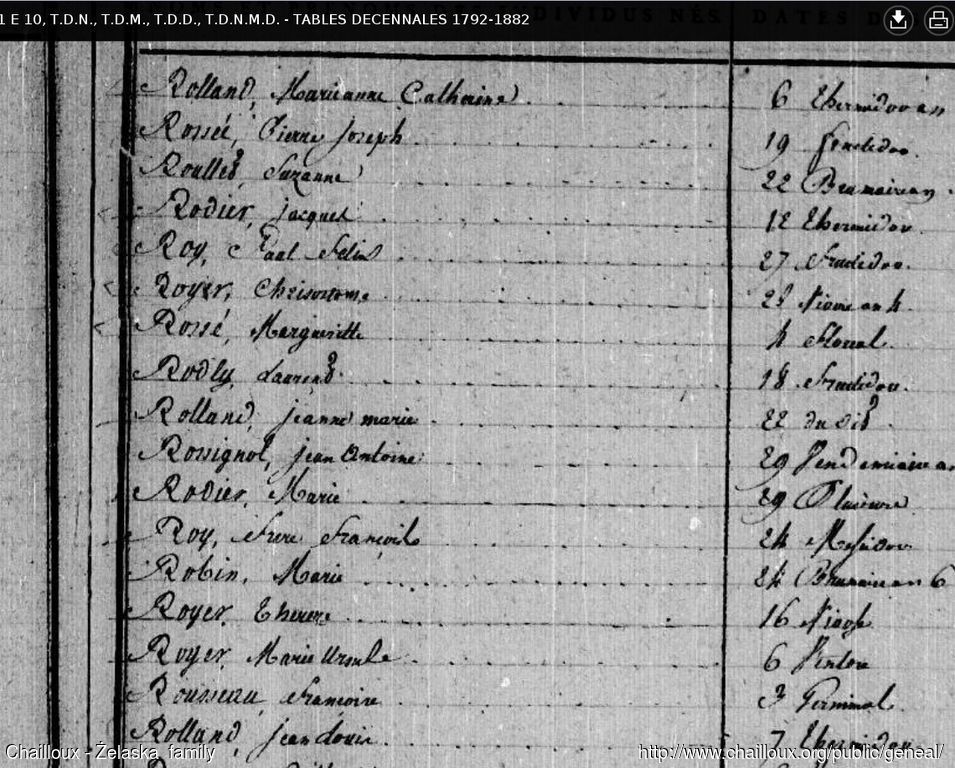 1 E 10, T.D.N., T.D.M., T.D.D., T.D.N.M.D. - TABLES DECENNALES 1792-1882
DIVIDUS NÉS. DATES D
Rolland, Marianne Catherine 6 thermidor an
Rossé, Pierre Joseph 19 fructidor
Suzanne 22 Brumaire an
Rodier, Jacques 12 thermidor
Roy, Paul Felix 27 fructidor
Royer, Chrisostome 28 Nivose an 4
Rossé, Margueritte 4 floreal
Rodly, Laurend 18 fructidor
Rolland, jeanne marie 22 dudit
Rossignol, jean Antoine 29 Vendemiaire an
Rodier, Marie 29 Pluviose
Roy, François 24 Messidor
Robin, Marie 24 Brumaire an 6
Royer, Therese 16 Nivose
Royer, Marie Ursule 6 Ventose
Rousseau, francoise 3 Germinal
Rolland, jean Louis 7 thermidor
Chailloux - Żelaska family http://www.chailloux.org/public/geneal/